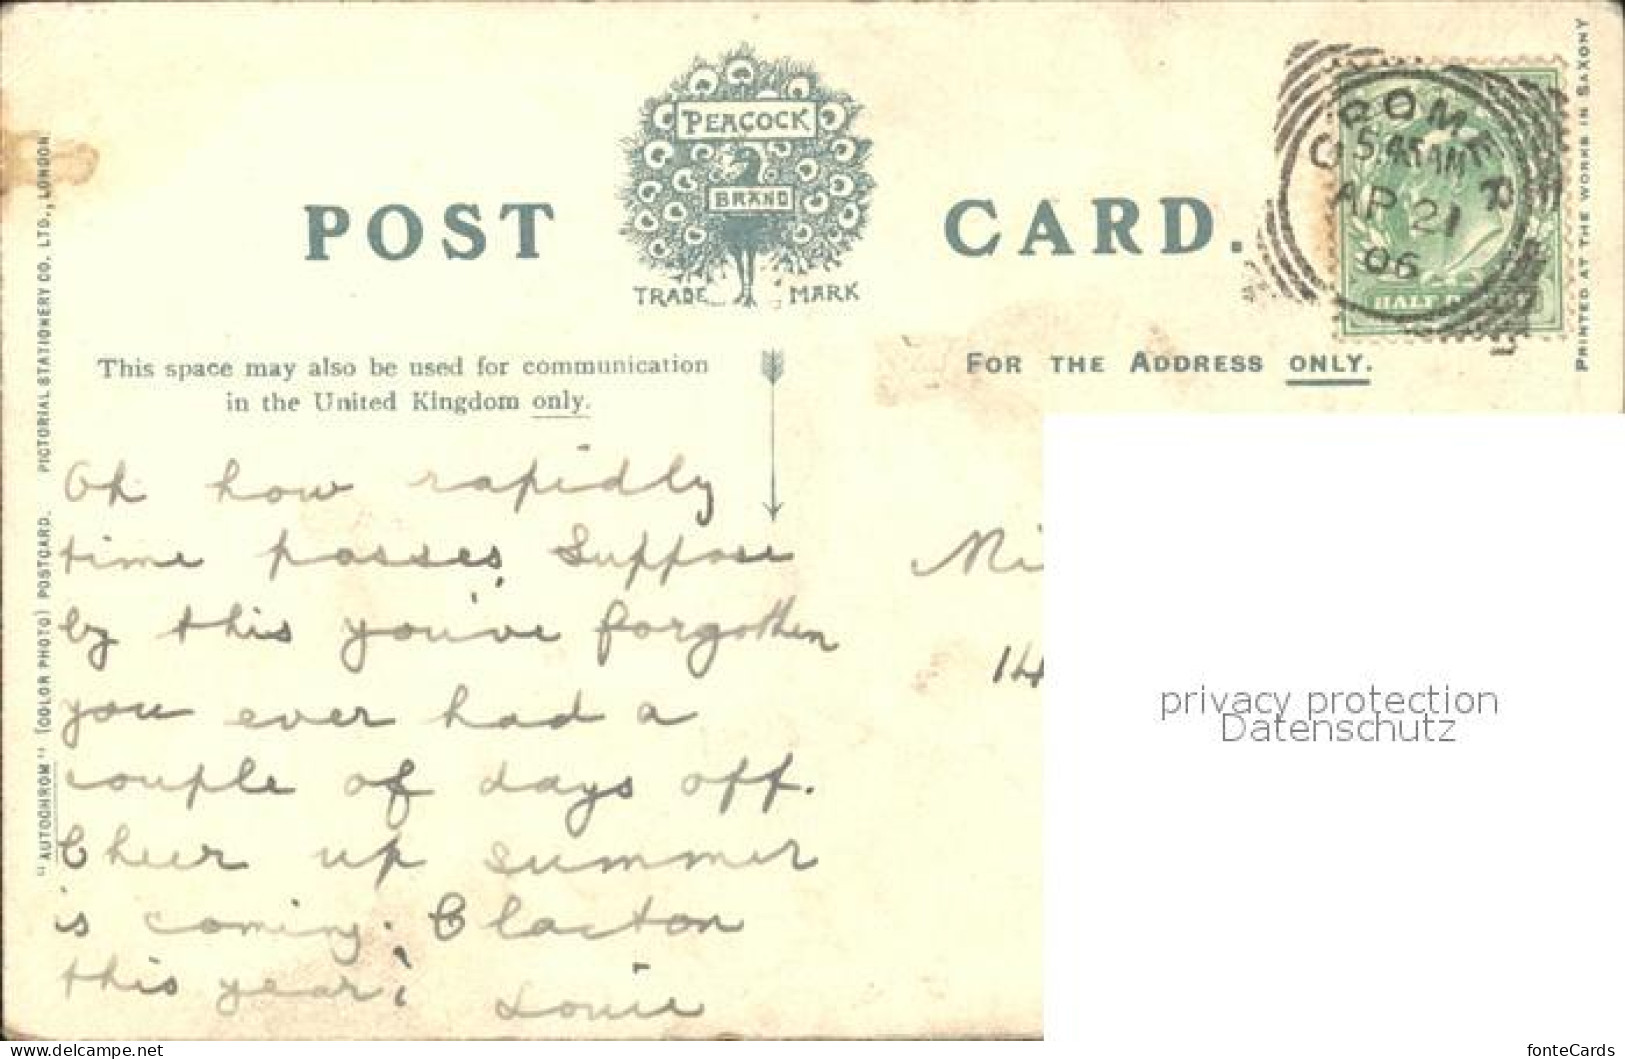 POST CARD.
PEACOCK
BRAND
TRADE MARK
CROMER
5.45 AM
AP 21
06
HALF
This space may also be used for communication
in the United Kingdom only.
FOR THE ADDRESS ONLY.
PRINTED AT THE WORKS IN SAXONY
"AUTOCHROM" (COLOR PHOTO) POSTCARD. PICTORIAL STATIONERY CO. LTD., LONDON
Oh how rapidly
time passes, Suppose
by this you've forgotten
you ever had a
couple of days off.
Cheer up summer
is coming. Clacton
this year!
Louie
Mi
14
privacy protection
Datenschutz
www.delcampe.net
fonteCards